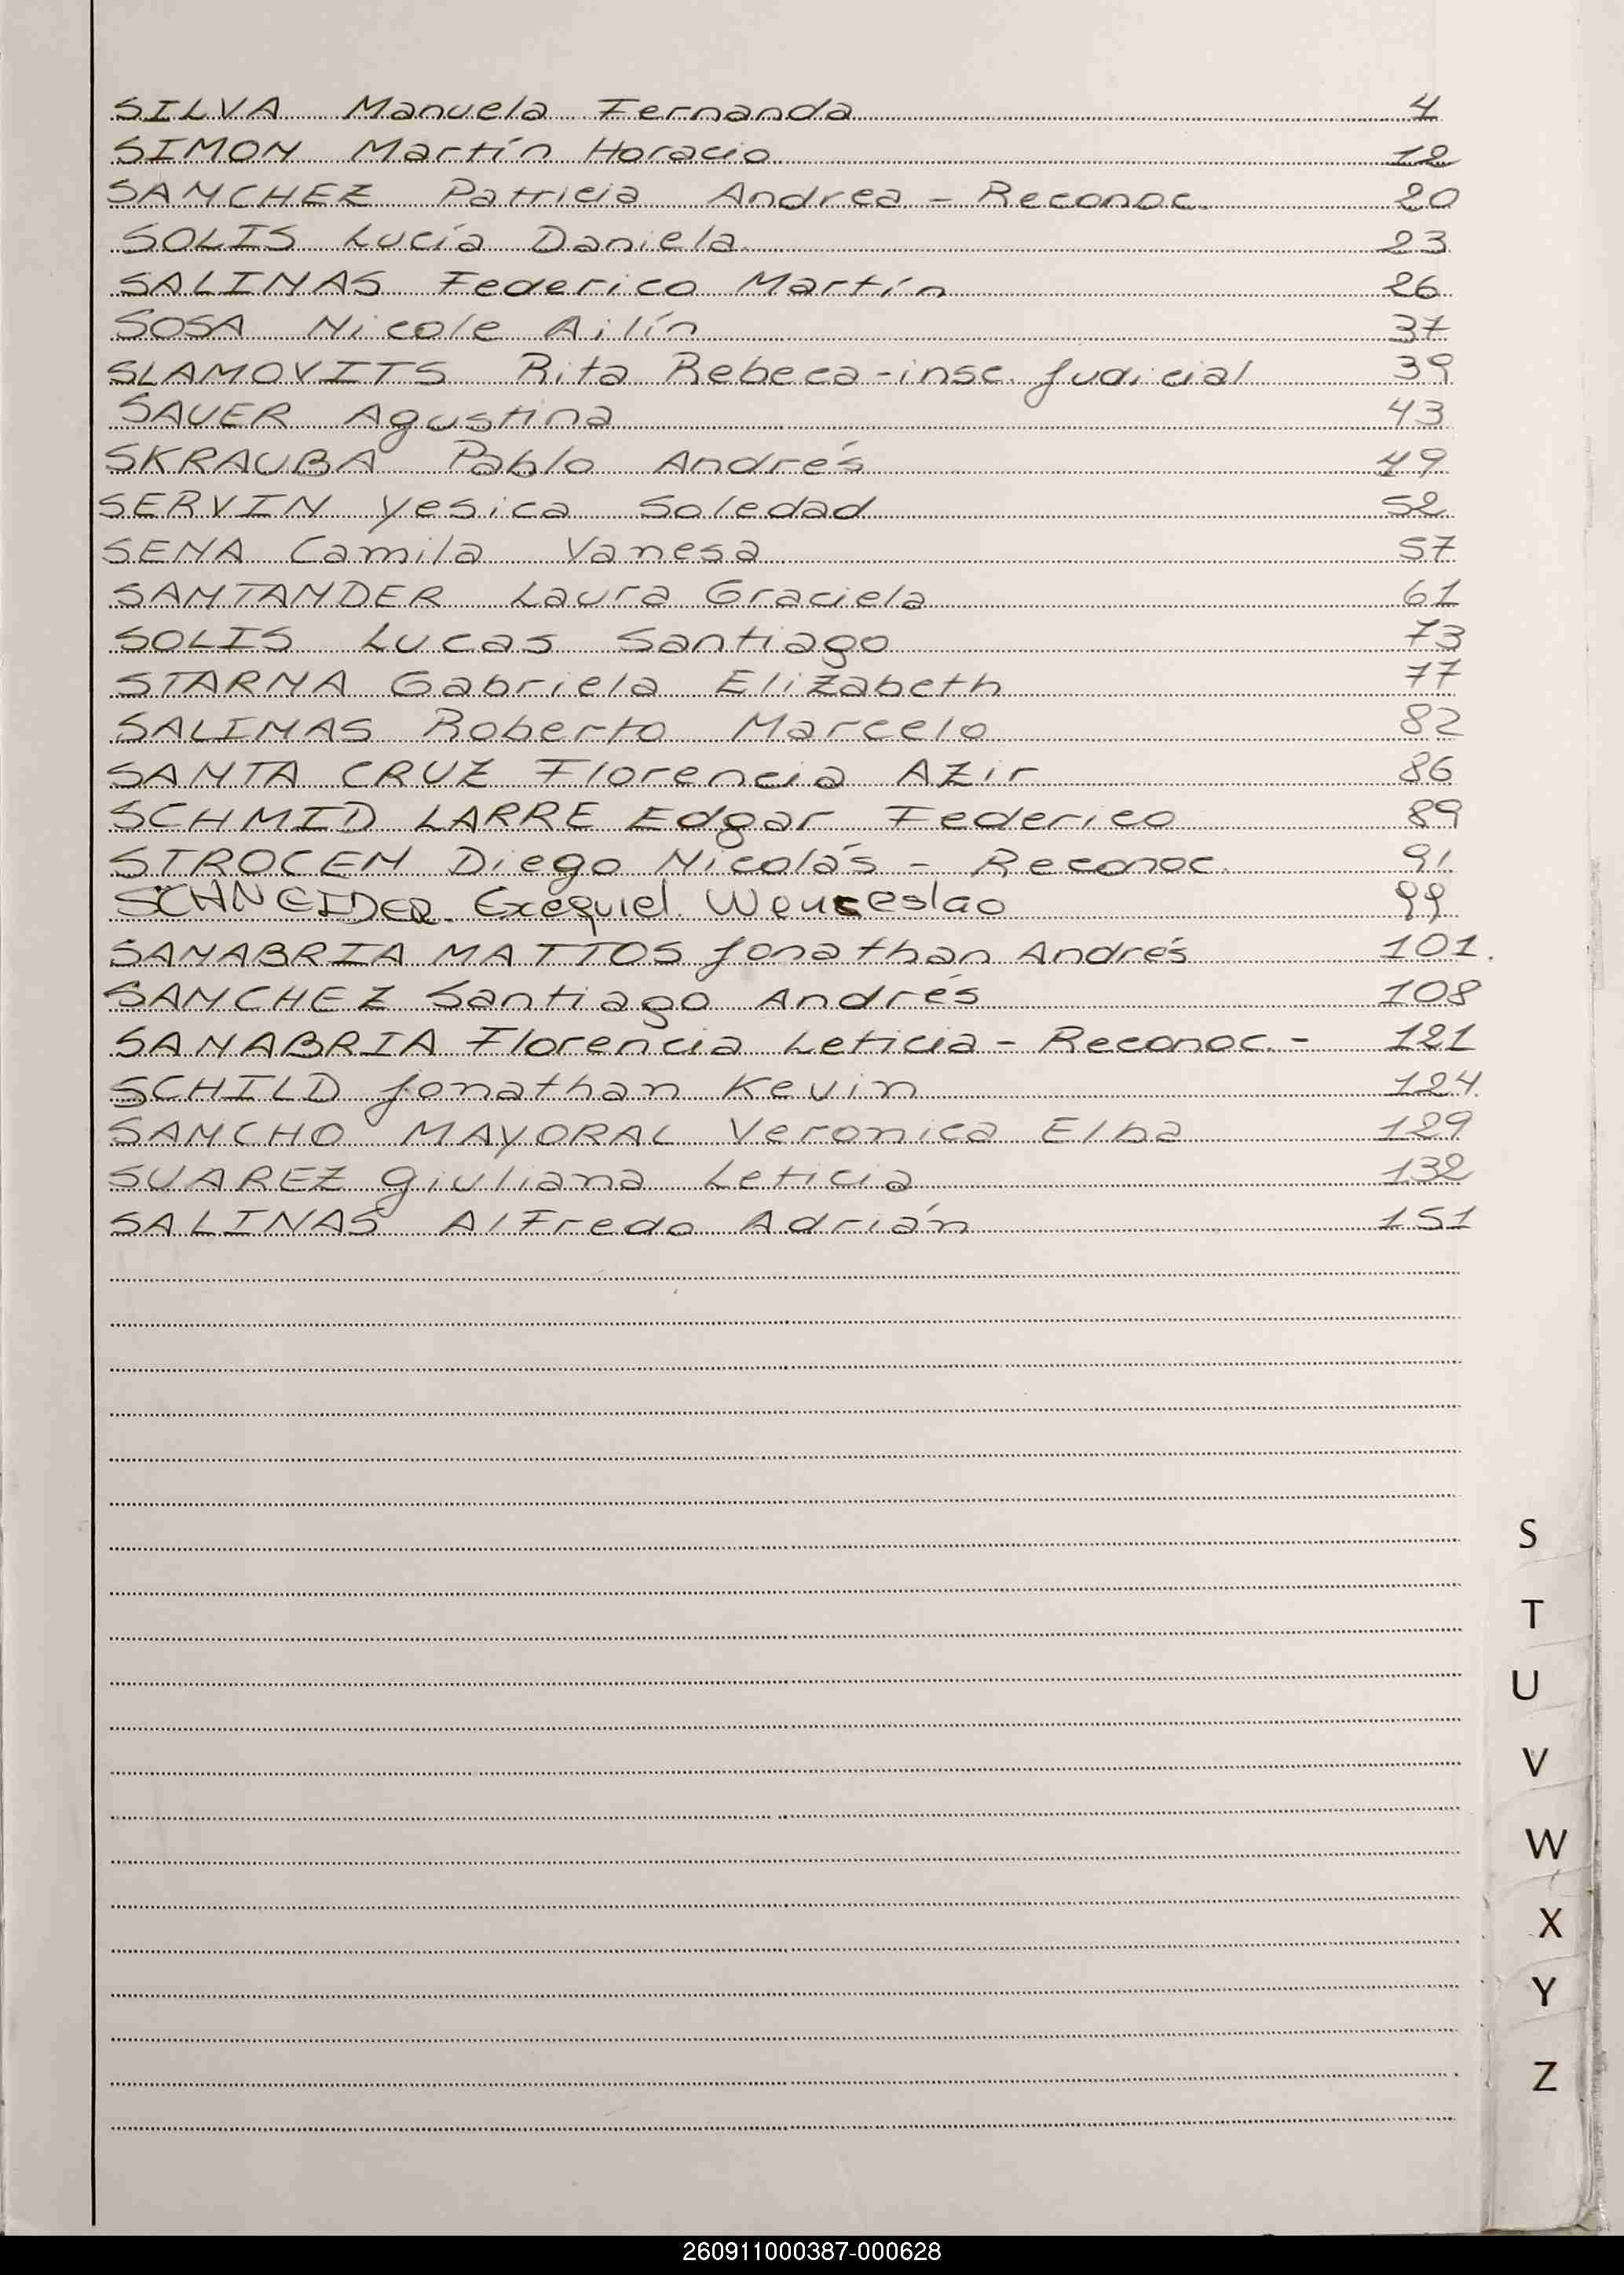 SILVA Manuela Fernanda 4
SIMON Martín Horacio 12
SANCHEZ Patricia Andrea - Reconoc. 20
SOLIS Lucía Daniela 23
SALINAS Federico Martín 26
SOSA Nicole Ailín 37
SLAMOVITS Rita Rebeca - insc. Judicial 39
SAUER Agustina 43
SKRAUBA Pablo Andrés 49
SERVIN Yesica Soledad 52
SENA Camila Vanesa 57
SANTANDER Laura Graciela 61
SOLIS Lucas Santiago 73
STARNA Gabriela Elizabeth 77
SALINAS Roberto Marcelo 82
SANTA CRUZ Florencia AZir 86
SCHMID LARRE Edgar Federico 89
STROCEN Diego Nicolás - Reconoc. 91
SCHNEIDER Exequiel Wenceslao 99
SANABRIA MATTOS Jonathan Andrés 101.
SANCHEZ Santiago Andrés 108
SANABRIA Florencia Leticia - Reconoc. - 121
SCHILD Jonathan Kevin 124
SANCHO MAYORAL Veronica Elba 129
SUAREZ Giuliana Leticia 132
SALINAS AlFredo Adrián 151
S
T
U
V
W
X
Y
Z
260911000387-000628